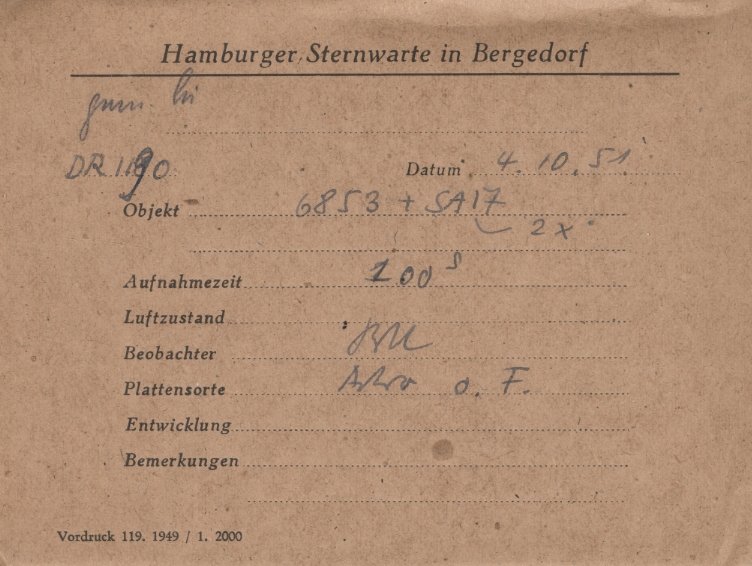 Hamburger Sternwarte in Bergedorf
DR 1190
Datum 4. 10. 51
Objekt 6853 + SA17
2x
Aufnahmezeit 100 s
Luftzustand
Beobachter
Plattensorte Astro o. F.
Entwicklung
Bemerkungen
Vordruck 119. 1949 / 1. 2000